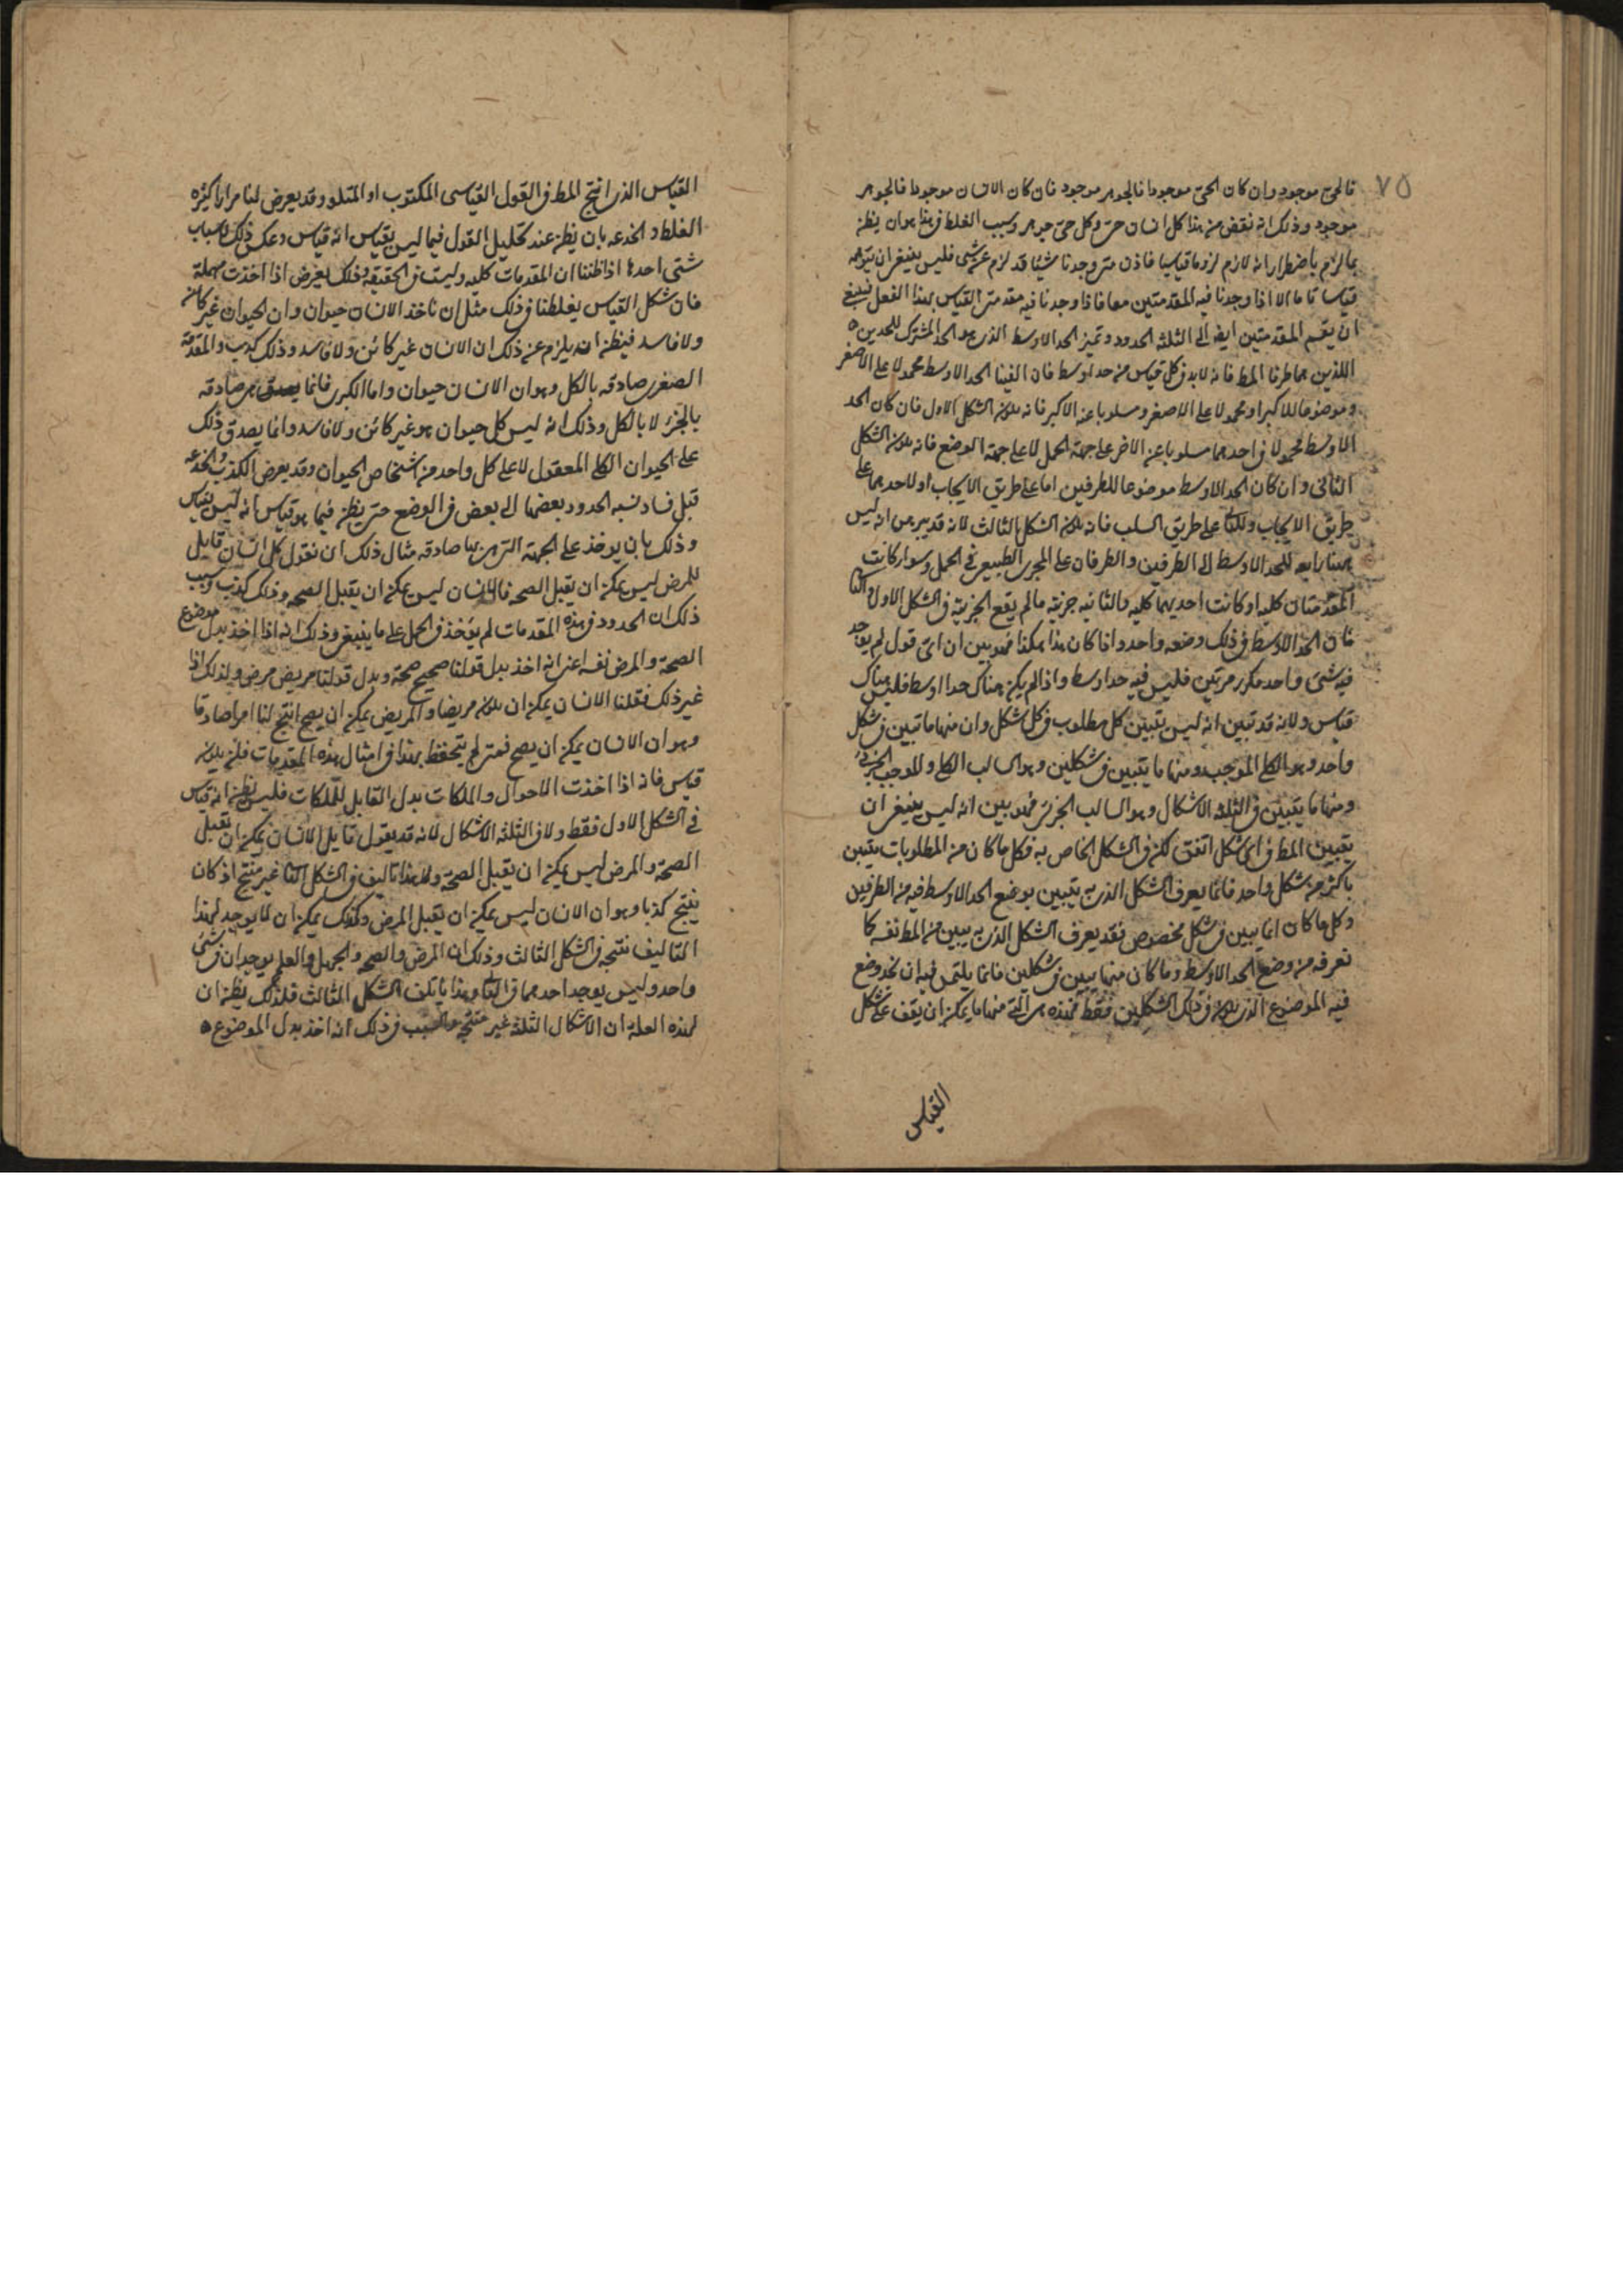 ٧٥
فالحي موجود وان كان الحي موجودا فالجوهر موجود فان كان الانسان موجودا فالجوهر
موجود وذلك انه نقض من هذا كل انسان حي وكل حي جوهر وسبب الغلط في هذا هو ان يظن
بما لزم باضطرار انه لازم لزوما قياسيا فاذن متى وجدنا شيئا قد لزم عن شي فليس ينبغي ان نتوهمه
قياسا تاما الا اذا وجدنا فيه المقدمتين معا فاذا وجدنا فيه مقدمتي القياس بهذا الفعل فينبغي
ان يقسم المقدمتين ايضا الى الثلثة الحدود ونميز الحد الاوسط الذي هو الحد المشترك للحدين
اللذين هما طرفا المط فانه لا بد في كل قياس من حد اوسط فان الفينا الحد الاوسط محمولا على الاصغر
وموضوعا للاكبر او محمولا على الاصغر ومسلوبا عنه الاكبر فانه يكون الشكل الاول فان كان الحد
الاوسط محمولا في احدهما مسلوبا عن الاخر على جهة الحمل لا على جهة الوضع فانه يكون الشكل
الثاني وان كان الحد الاوسط موضوعا للطرفين اما على طريق الايجاب او لاحدهما على
طريق الايجاب وللثاني على طريق السلب فانه يكون الشكل الثالث لانه قد تبرهن انه ليس
للحد الاوسط الى الطرفين والطرفان على المجرى الطبيعي في الحمل وسواء كانت
المقدمتان كلية او كانت احديهما كلية والثانية جزئية ما لم يقع الجزئية في الشكل الاول
فان الحد الاوسط في ذلك وضعه واحد واذا كان هذا هكذا فهو بين ان اي قول لم يوجد
فيه شي واحد مكرر مرتين فليس فيه حد اوسط واذا لم يكن هناك حد اوسط فليس هناك
قياس ولانه قد تبين انه ليس يتبين كل مطلوب في كل شكل وان منها ما تبين في شكل
واحد وهو الكلي الموجب ومنها ما يتبين في شكلين وهو السالب الكلي والموجب الجزئي
ومنها ما يتبين في الثلثة الاشكال وهو السالب الجزئي فهو بين انه ليس ينبغي ان
تبيين المط في اي شكل اتفق لكن في الشكل الخاص به فكل ما كان من المطلوبات يتبين
باكثر من شكل واحد فانما يعرف الشكل الذي به يتبيين بوضع الحد الاوسط فيه من الطرفين
وكل ما كان انما يبين في شكل مخصوص فقد يعرف الشكل الذي به يبين من المط نفسه كما
نعرفه من وضع الحد الاوسط وما كان منها يبين في شكلين فانما يلتمس فيه ان نجد وضع
فيه الموضوع الذي يكون في ذلك الشكلين فقط فهذه هي التي منها ما يمكن ان يقف على شكل
القياس
القياس الذي انتج المط في القول القياسي المكتوب او المتلو وقد يعرض لنا مرارا كثيرة
الغلط والخدعة بان يظن عند تحليل القول فيما ليس بقياس انه قياس وعكس ذلك واسباب
شتى احدها اذا ظننا ان المقدمات كلية وليست في الحقيقة وذلك يعرض اذا اخذت مهملة
فان شكل القياس يغلطنا في ذلك مثل ان ناخذ الانسان حيوان وان الحيوان غير كائن
ولا فاسد فيظن انه يلزم عن ذلك ان الانسان غير كائن ولا فاسد وذلك كذب والمقدمة
الصغرى صادقة بالكل وهو ان الانسان حيوان واما الكبرى فانما هي صادقة
بالجزء لا بالكل وذلك انه ليس كل حيوان هو غير كائن ولا فاسد وانما يصدق ذلك
على الحيوان الكلي المعقول لا على كل واحد من اشخاص الحيوان وقد يعرض الكذب والخدعة
قبل فساد نسبة الحدود بعضها الى بعض في الوضع حتى يظن فيما هو قياس انه ليس بقياس
وذلك بان يوخذ على الجهة التي هي بها صادقة مثال ذلك ان نقول كل انسان قابل
للمرض ليس يمكن ان يقبل الصحة فالانسان ليس يمكن ان يقبل الصحة وذلك كذب وسبب
ذلك ان الحدود في هذه المقدمات لم يؤخذ في الحمل على ما ينبغي وذلك انه اذا اخذ بدل موضوع
الصحة والمرض نفسه اعني انه اخذ بدل قولنا صحيح صحة وبدل قولنا مريض مرض ولذلك اذا
غير ذلك فقلنا الانسان يمكن ان يكون مريضا والمريض يمكن ان يصح انتج لنا امرا صادقا
وهو ان الانسان يمكن ان يصح فمتى لم يتحفظ بهذا في امثال هذه المقدمات فلم يكن
قياس فانه اذا اخذت الاحوال والملكات بدل القابل للملكات فليس يظن انه قياس
في الشكل الاول فقط ولا في الثلثة الاشكال لانه قد يقول قايل الانسان يمكن ان يقبل
الصحة والمرض ليس يمكن ان يقبل الصحة ولا هذا تاليف في الشكل الثاني غير منتج اذ كان
ينتج كذبا وهو ان الانسان ليس يمكن ان يقبل المرض وكذلك يمكن ان لا يوجد لهذا
التاليف نتيجة في الشكل الثالث وذلك ان المرض والصحة والجهل والعلم يوجدان في شي
واحد وليس يوجد احدهما في الثاني وهذا ياتلف الشكل الثالث فلذلك يظن ان
لهذه العلة ان الاشكال الثلثة غير منتجة والسبب في ذلك انه اخذ بدل الموضوع